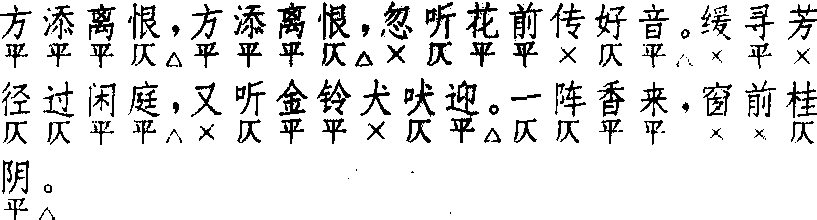 方添离恨,方添离恨,忽听花前传好音。缓寻芳
平平平仄△平平平仄△×仄平平×仄平△×平×
径过闲庭,又听金铃犬吠迎。一阵香来,窗前桂
仄仄平平△×仄平平×仄平△仄仄平平××仄
阴。
平△